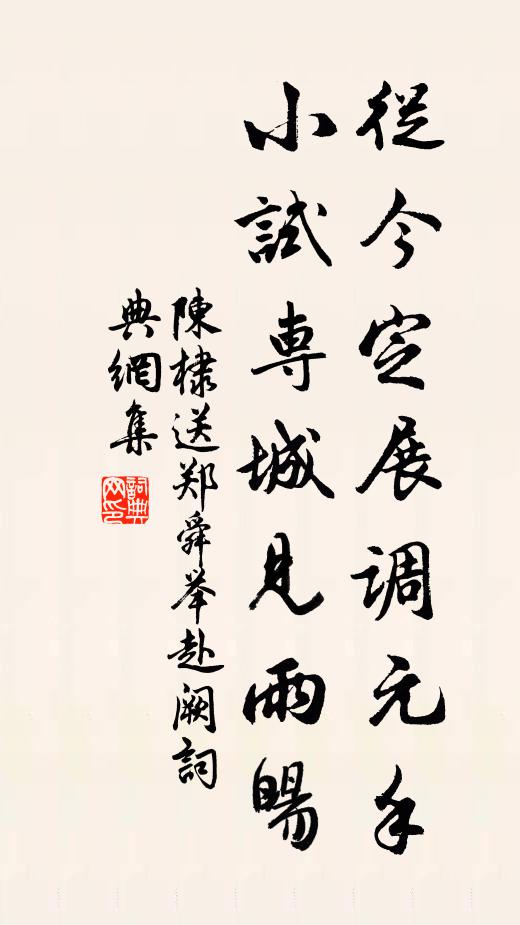 從今定展調元手
小試専城見雨暘
陳棣送郑舜举赴阙詞
典網集
詞典网印